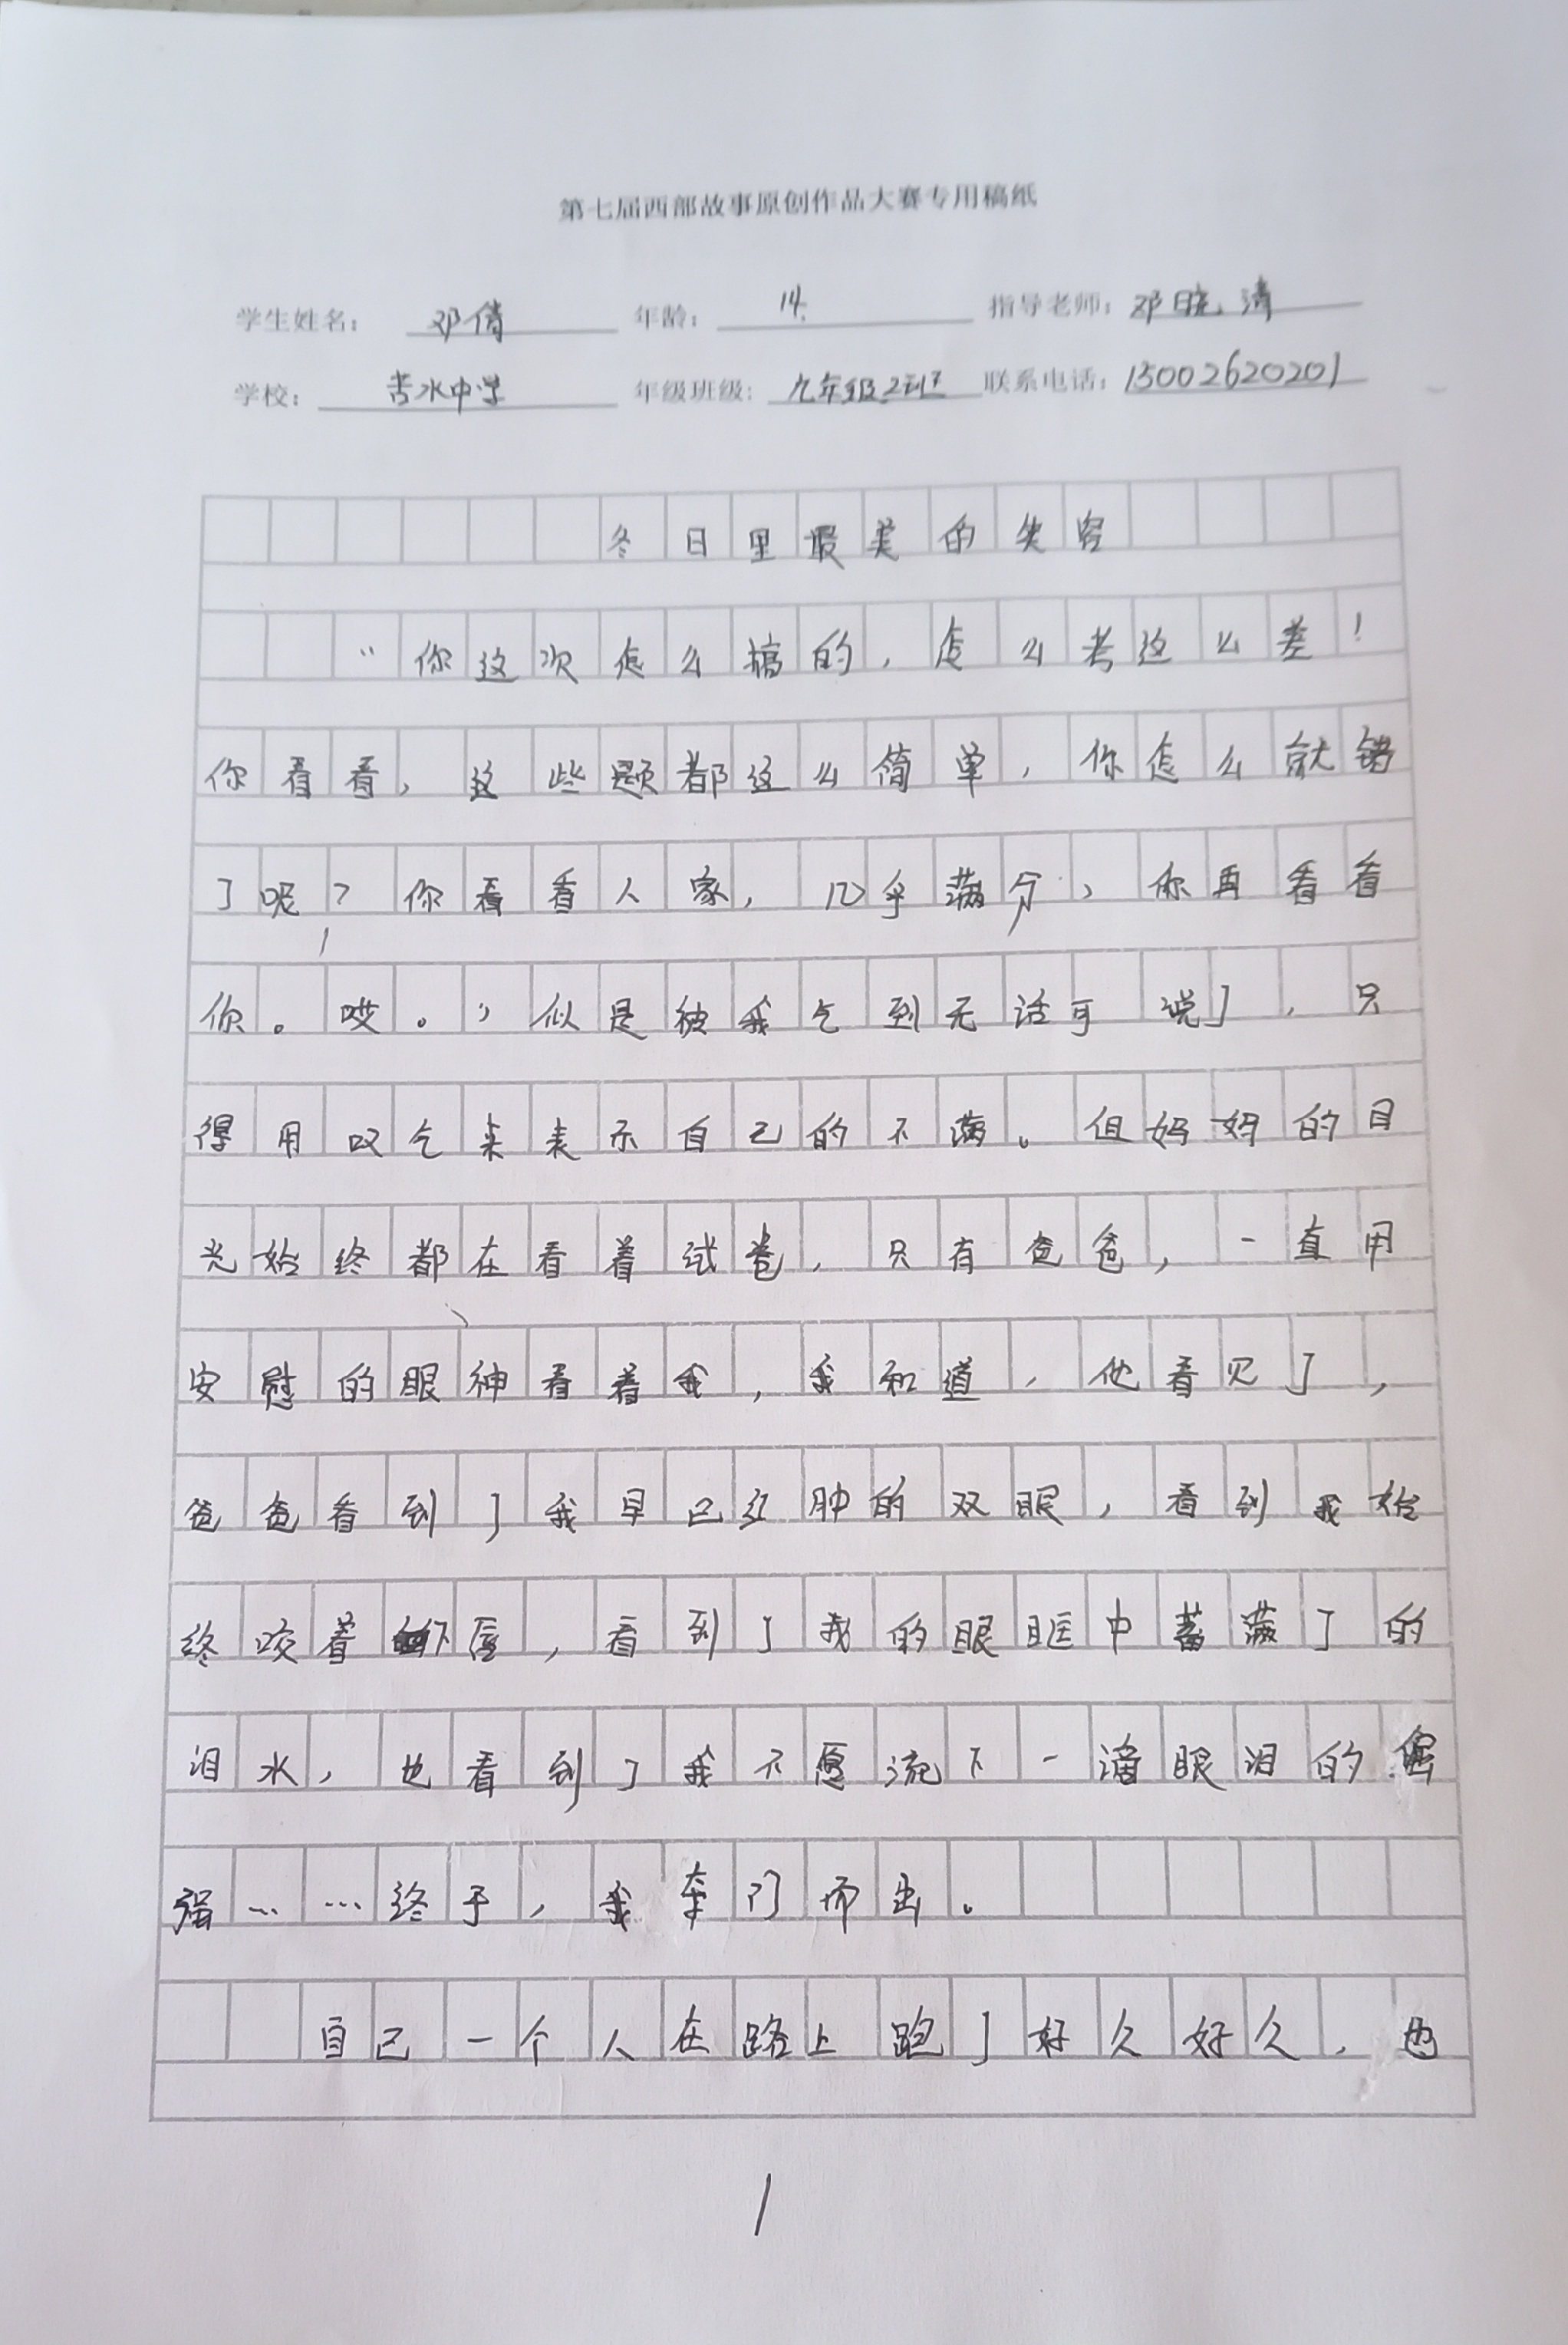 第七届西部故事原创作品大赛专用稿纸
学生姓名： 邓倩 年龄： 14. 指导老师：邓晓清
学校： 苦水中学 年级班级： 九年级2班 联系电话：15002620201
冬日里最美的笑容
“你这次怎么搞的，怎么考这么差！
你看看，这些题都这么简单，你怎么就错
了呢？你看看人家，几乎满分，你再看看
你。哎。”似是被我气到无话可说了，只
得用叹气来表示自己的不满。但妈妈的目
光始终都在看着试卷，只有爸爸，一直用
安慰的眼神看着我，我知道，他看见了，
爸爸看到了我早已红肿的双眼，看到我始
终咬着下唇，看到了我的眼眶中蓄满了的
泪水，也看到了我不愿流下一滴眼泪的倔
强……终于，我夺门而出。
自己一个人在路上跑了好久好久，也
1